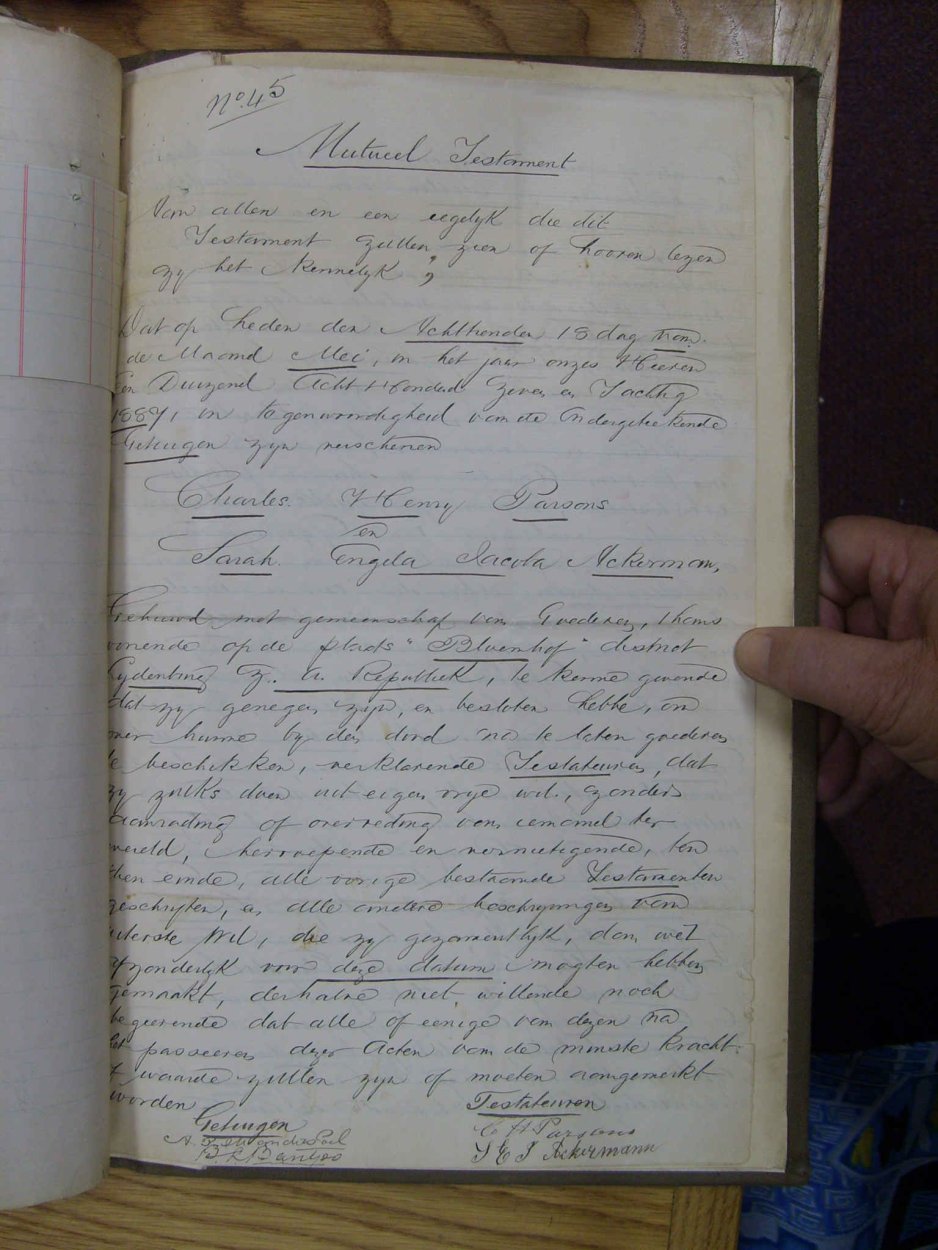 No. 45
Mutueel Testament
Van allen en een iegelyk die dit
Testament zullen zien of hooren lezen
zy het kennelyk,
Dat op heden den Achttienden 18 dag van
de Maand Mei, in het jaar onzes Heeren
Een Duizend Acht Honderd Zeven en Tachtig
1887, in tegenwoordigheid van de Ondergetekende
Getuigen zyn verschenen
Charles Henry Parsons
en
Sarah Engela Jacoba Ackerman,
Gehuwd met gemeenschap van Goederen, thans
wonende op de plaats " " district
Lydenburg Z. A. Republiek, te kenne gevende
dat zy genegen zyn, en besloten hebbe, om
over hunne by den dood na te laten goederen
te beschikken, verklarende Testateuren, dat
zy zulks doen uit eigen vrye wil, zonder
aanrading of overreding van iemand ter
wereld, herroepende en vernietegende, ten
dien einde, alle vorige bestaande Testamenten
geschriften, en alle andere beschryvingen van
uiterste Wil, die zy gezamentlyk, dan wel
afzonderlyk voor deze datum mogten hebben
gemaakt, derhalve niet willende noch
begeerende dat alle of eenige van dezen na
het passeeren dezer Acten van de minste kracht
of waarde zullen zyn of moeten aangemerkt
worden
Getuigen Testateuren
C H Parsons
S E J Ackermann